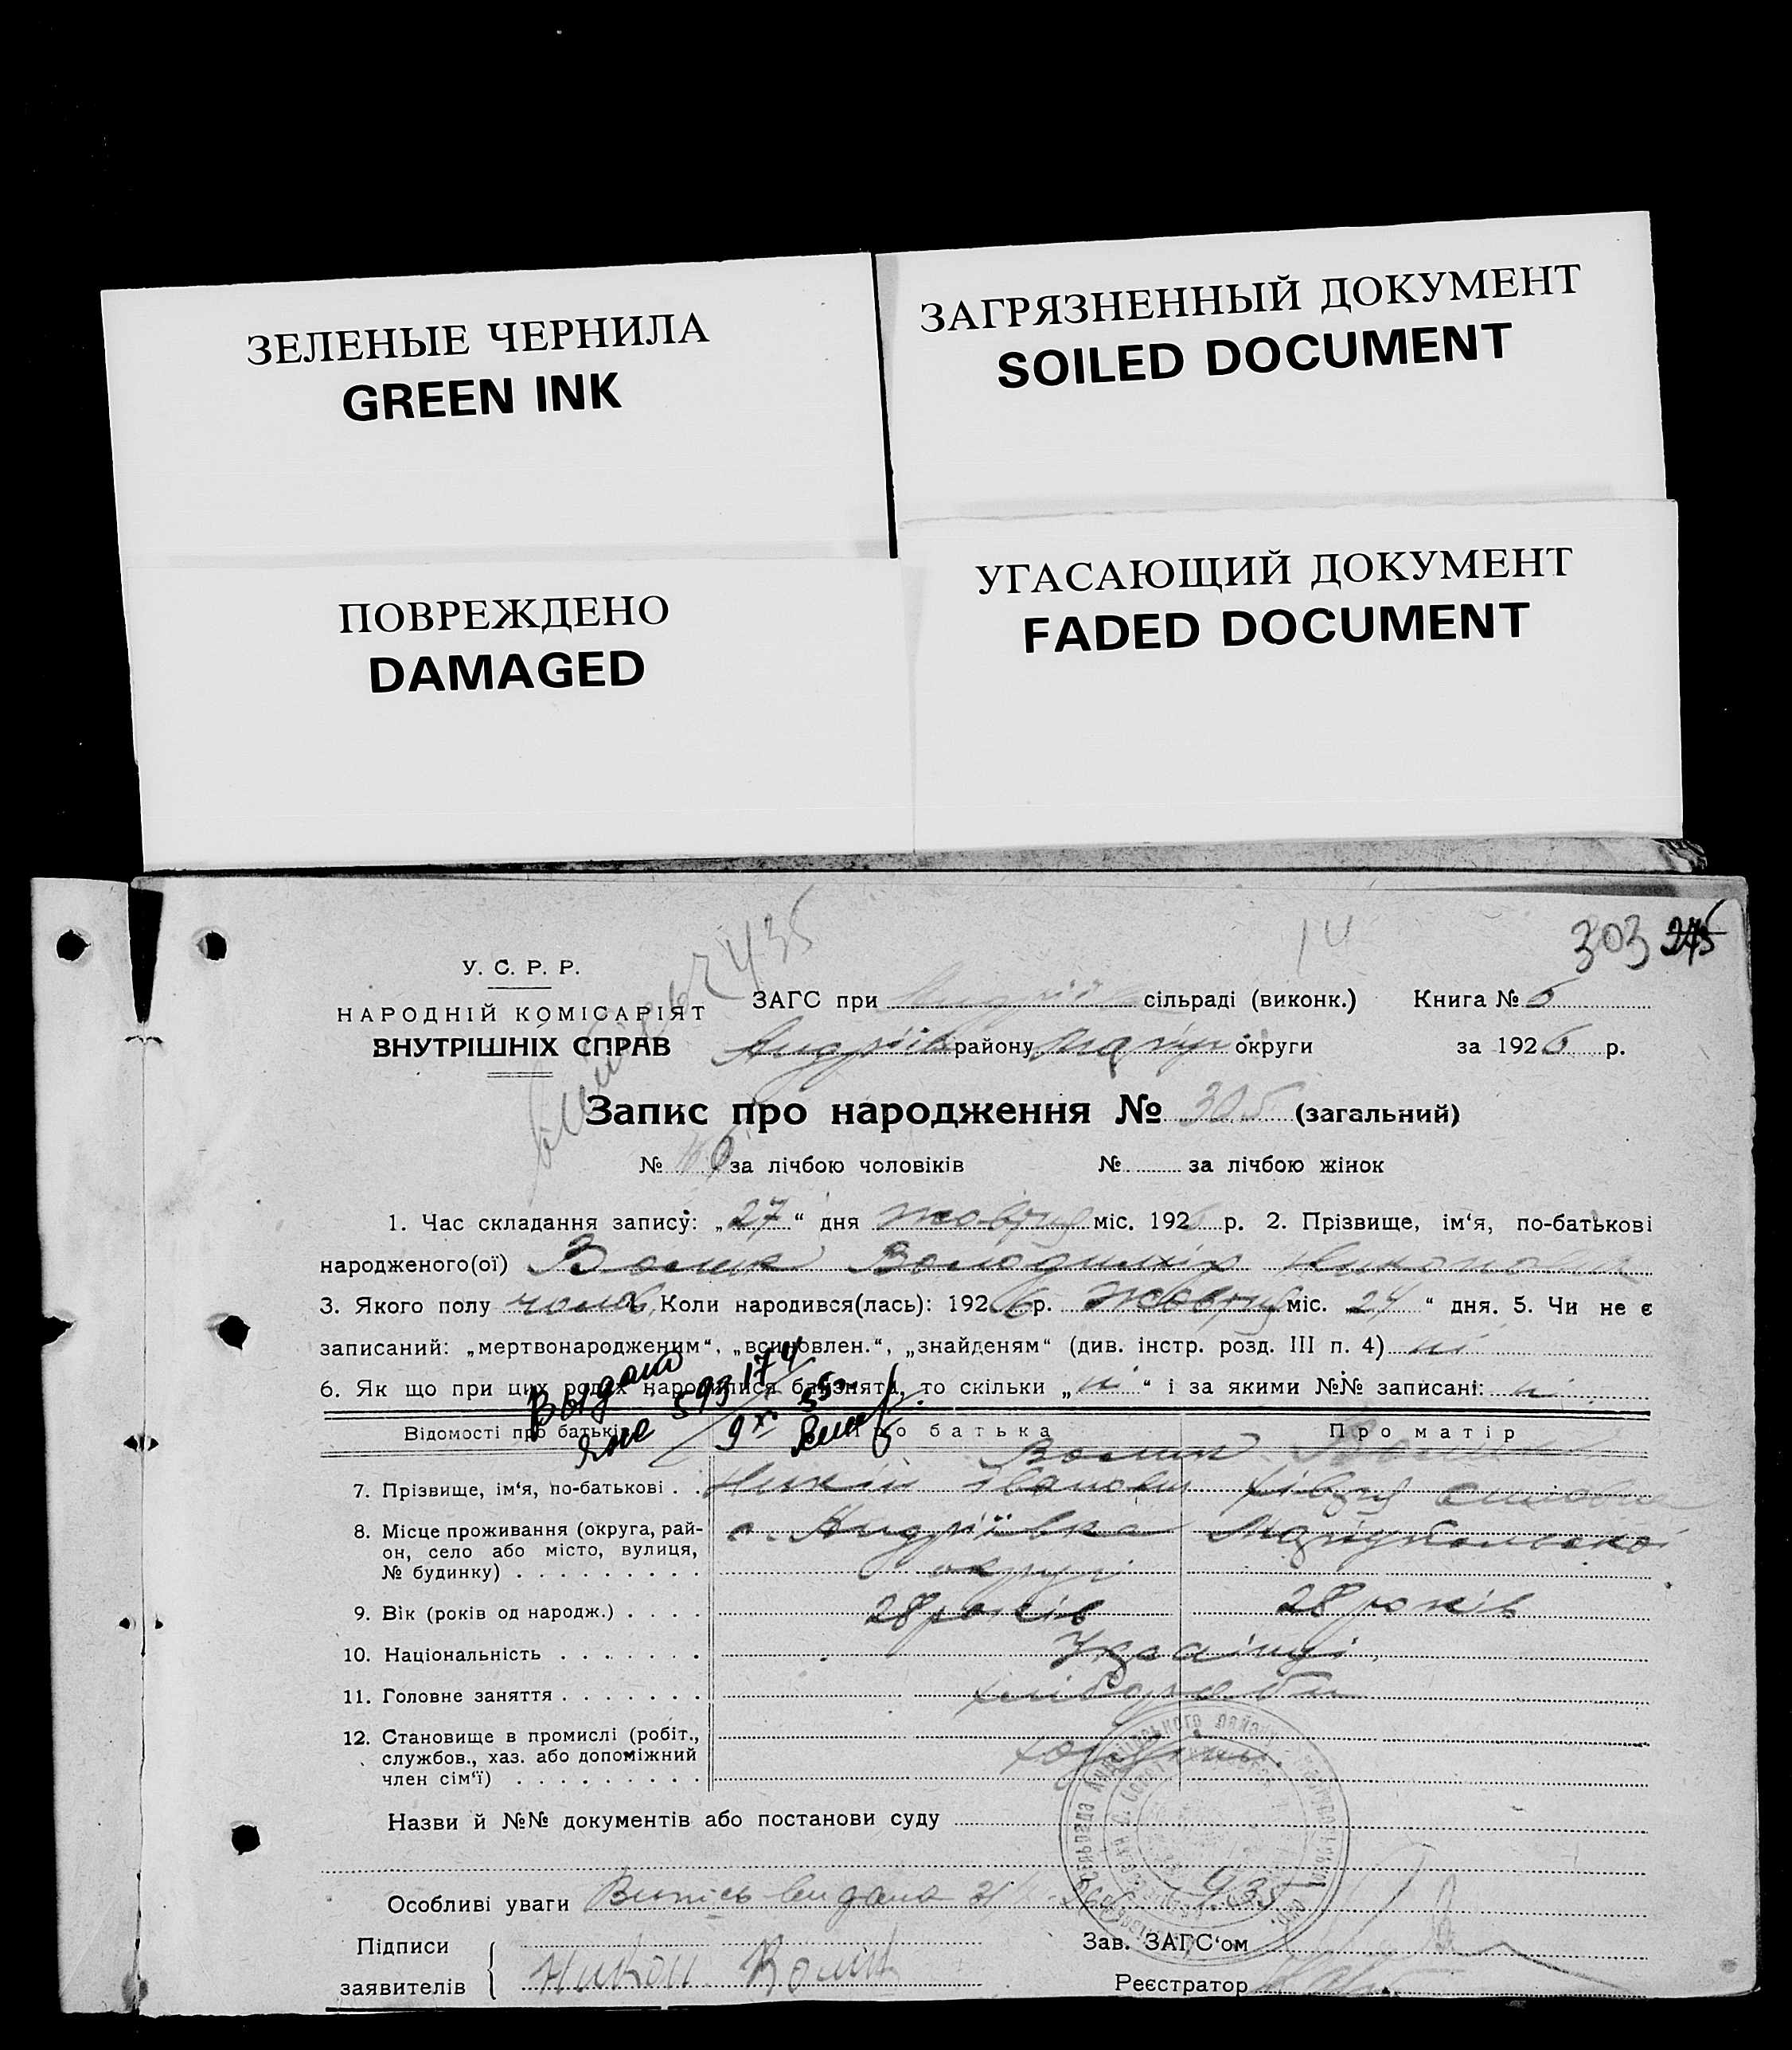 ЗЕЛЕНЫЕ ЧЕРНИЛА
GREEN INK
ЗАГРЯЗНЕННЫЙ ДОКУМЕНТ
SOILED DOCUMENT
ПОВРЕЖДЕНО
DAMAGED
УГАСАЮЩИЙ ДОКУМЕНТ
FADED DOCUMENT
14
303 275
У. С. Р. Р.
НАРОДНІЙ КОМІСАРІЯТ
ВНУТРІШНІХ СПРАВ
ЗАГС при сільраді (виконк.) Книга № 6
Андріїв району Маріуп округи за 1926 р.
Запис про народження № 305 (загальний)
№ за лічбою чоловіків № за лічбою жінок
1. Час складання запису: „27“ дня жовтня міс. 1926 р. 2. Прізвище, ім‘я, по-батькові
народженого(ої) Волик Володимір Никонович
3. Якого полу чолов. Коли народився(лась): 1926 р. жовтня міс. 24 “ дня. 5. Чи не є
записаний: „мертвонародженим“, „всиновлен.“, „знайденям“ (див. інстр. розд. III п. 4) ні
6. Як що при цих родах народилися близнята, то скільки „ні“ і за якими №№ записані: ні
Выдано
593174
Відомості про батьків Про батька Про матір
Волик
7. Прізвище, ім‘я, по-батькові . . Никон Іванович
8. Місце проживання (округа, рай- с. Андріївка Маріупольської
он, село або місто, вулиця, округи
№ будинку) . . . . . . . . .
9. Вік (років од народж.) . . . . 28 років 28 років
10. Національність . . . . . . . Українці
11. Головне заняття . . . . . . . хлібороби
12. Становище в промислі (робіт.,
службов., хаз. або допоміжний
член сім‘ї) . . . . . . . . .
Назви й №№ документів або постанови суду
Особливі уваги Випись видана
935
Підписи
заявителів Никон Волик
Зав. ЗАГС‘ом
Реєстратор